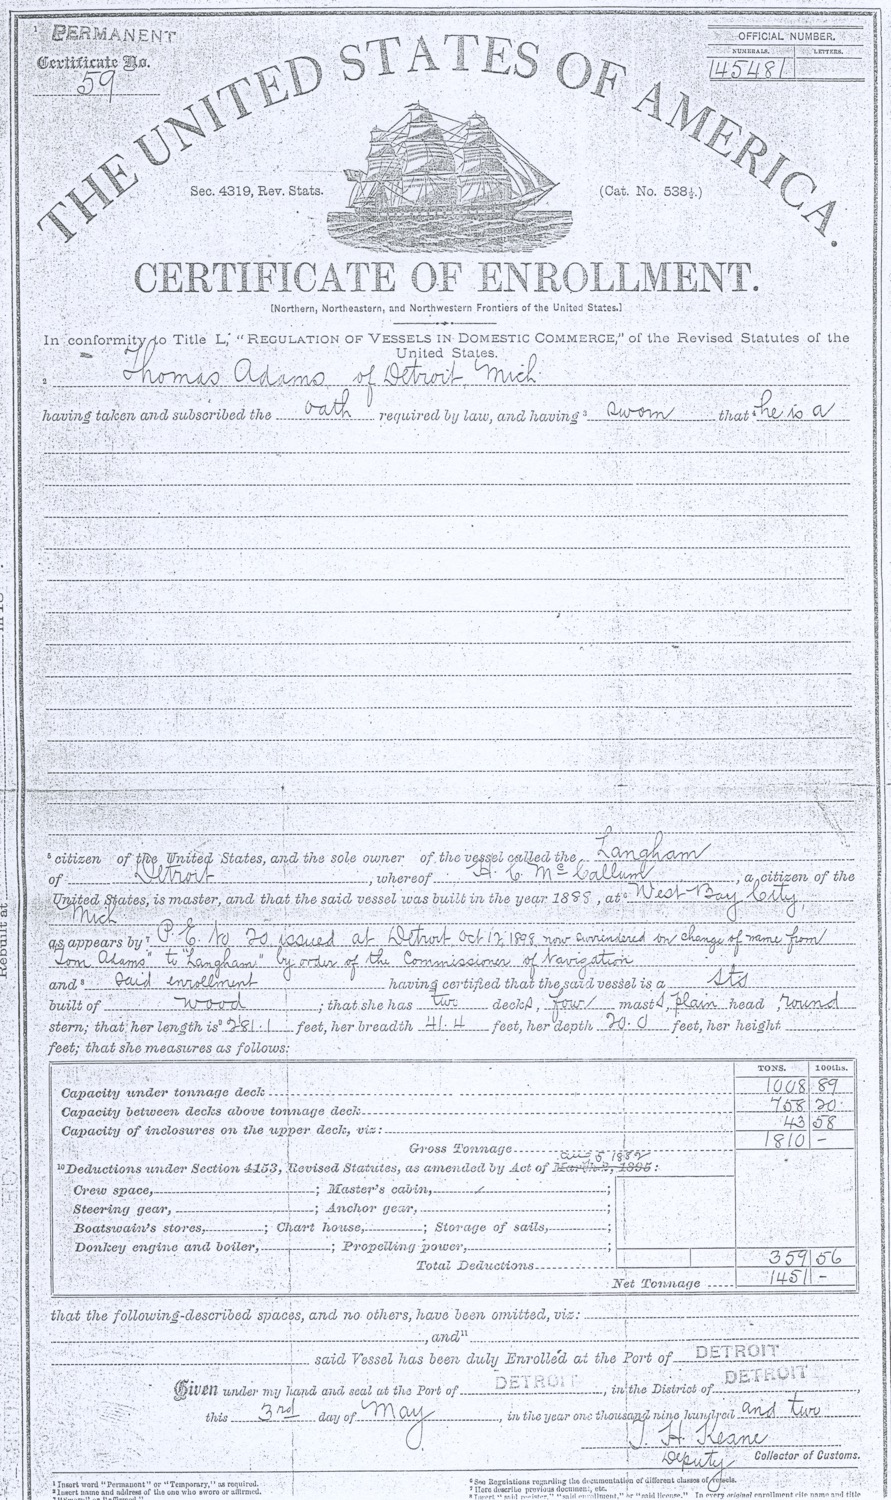 1 PERMANENT
Certificate No.
59
OFFICIAL NUMBER.
NUMERALS. LETTERS.
145481
THE UNITED STATES OF AMERICA.
Sec. 4319, Rev. Stats. (Cat. No. 538½.)
CERTIFICATE OF ENROLLMENT.
[Northern, Northeastern, and Northwestern Frontiers of the United States.]
In conformity to Title L, "REGULATION OF VESSELS IN DOMESTIC COMMERCE," of the Revised Statutes of the
United States.
2 Thomas Adams, of Detroit, Mich.
having taken and subscribed the oath required by law, and having 3 sworn that 4 he is a
5 citizen of the United States, and the sole owner of the vessel called the Langham
of Detroit, whereof H. C. McCallum, a citizen of the
United States, is master, and that the said vessel was built in the year 1888, at 6 West Bay City,
Mich
as appears by 7 P. E. No 20 issued at Detroit Oct 12, 1898 now surrendered on change of name from
"Tom Adams" to "Langham" by order of the Commissioner of Navigation
and 8 said enrollment having certified that the said vessel is a Sts
built of wood; that she has two decks, four masts, plain head, round
stern; that her length is 9 281.1 feet, her breadth 41.4 feet, her depth 20.0 feet, her height
feet; that she measures as follows:
TONS. 100ths.
Capacity under tonnage deck 1008 89
Capacity between decks above tonnage deck 758 20
Capacity of inclosures on the upper deck, viz: 43 58
Gross Tonnage 1810 -
Aug 5 1882
10 Deductions under Section 4153, Revised Statutes, as amended by Act of March 2, 1895:
Crew space, ; Master's cabin, ;
Steering gear, ; Anchor gear, ;
Boatswain's stores, ; Chart house, ; Storage of sails, ;
Donkey engine and boiler, ; Propelling power, ;
Total Deductions 359 56
Net Tonnage 1451 -
that the following-described spaces, and no others, have been omitted, viz:
, and 11
said Vessel has been duly Enrolled at the Port of DETROIT
Given under my hand and seal at the Port of DETROIT, in the District of DETROIT,
this 3rd day of May, in the year one thousand nine hundred and two
J. H. Keane
Deputy Collector of Customs.
1 Insert word "Permanent" or "Temporary," as required.
2 Insert name and address of the one who swore or affirmed.
6 See Regulations regarding the documentation of different classes of vessels.
7 Here describe previous document, etc.
Rebuilt at